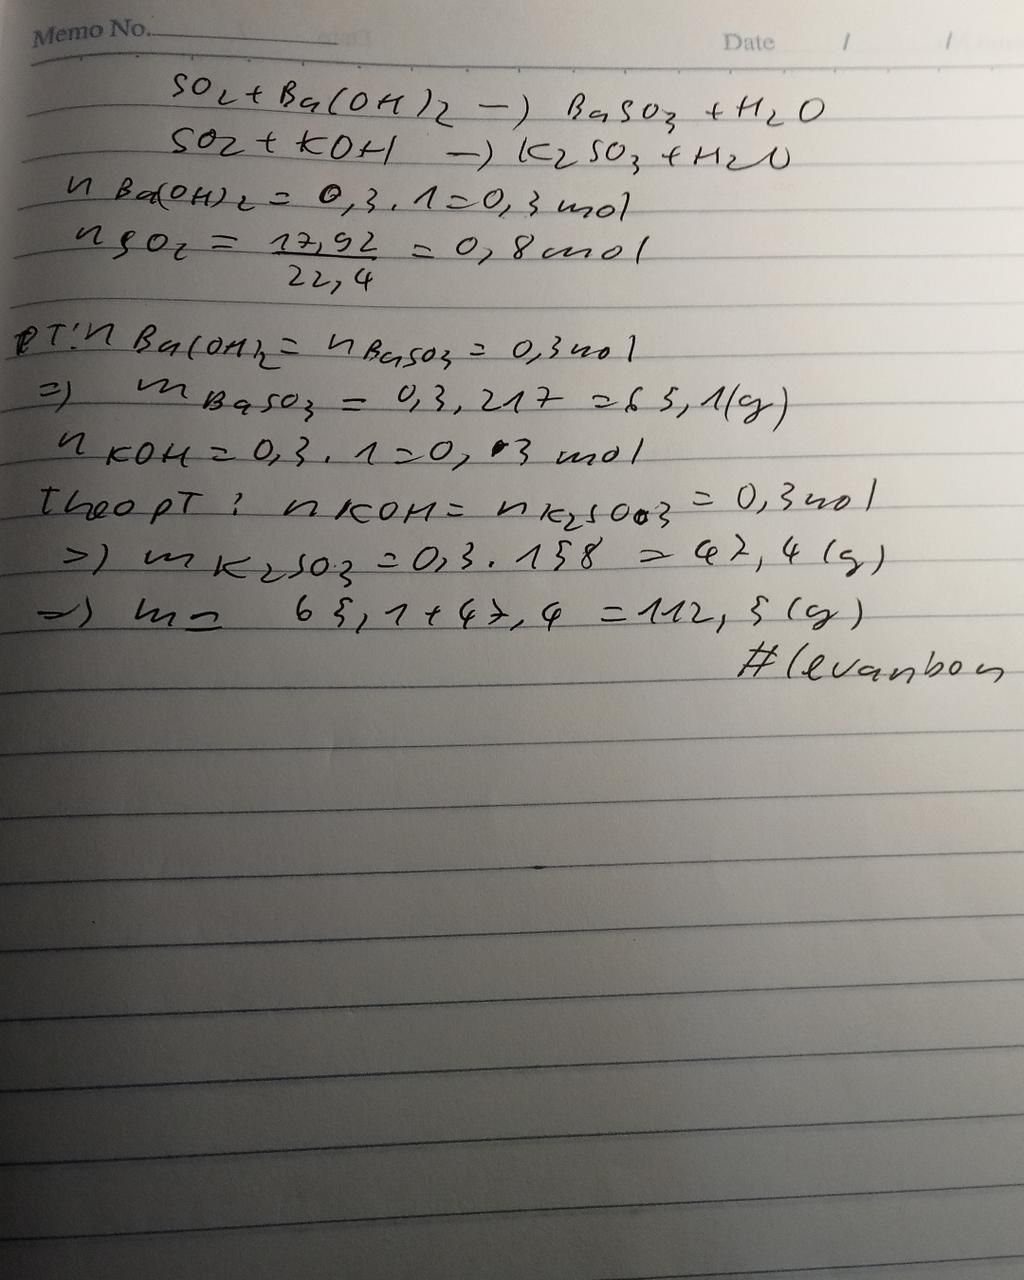 Memo No.
Date / /
SO2 + Ba(OH)2 -) BaSO3 + H2O
SO2 + KOH -) K2SO3 + H2O
n Ba(OH)2 = 0,3 . 1 = 0,3 mol
n SO2 = 17,92/22,4 = 0,8 mol
PT: n Ba(OH)2 = n BaSO3 = 0,3 mol
=) m BaSO3 = 0,3 , 217 = 65,1 (g)
n KOH = 0,3 . 1 = 0,3 mol
theo pT : n KOH = n K2SO3 = 0,3 mol
=) m K2SO3 = 0,3 . 158 = 47,4 (g)
=) m = 65,1 + 47,4 = 112,5 (g)
#levanbon